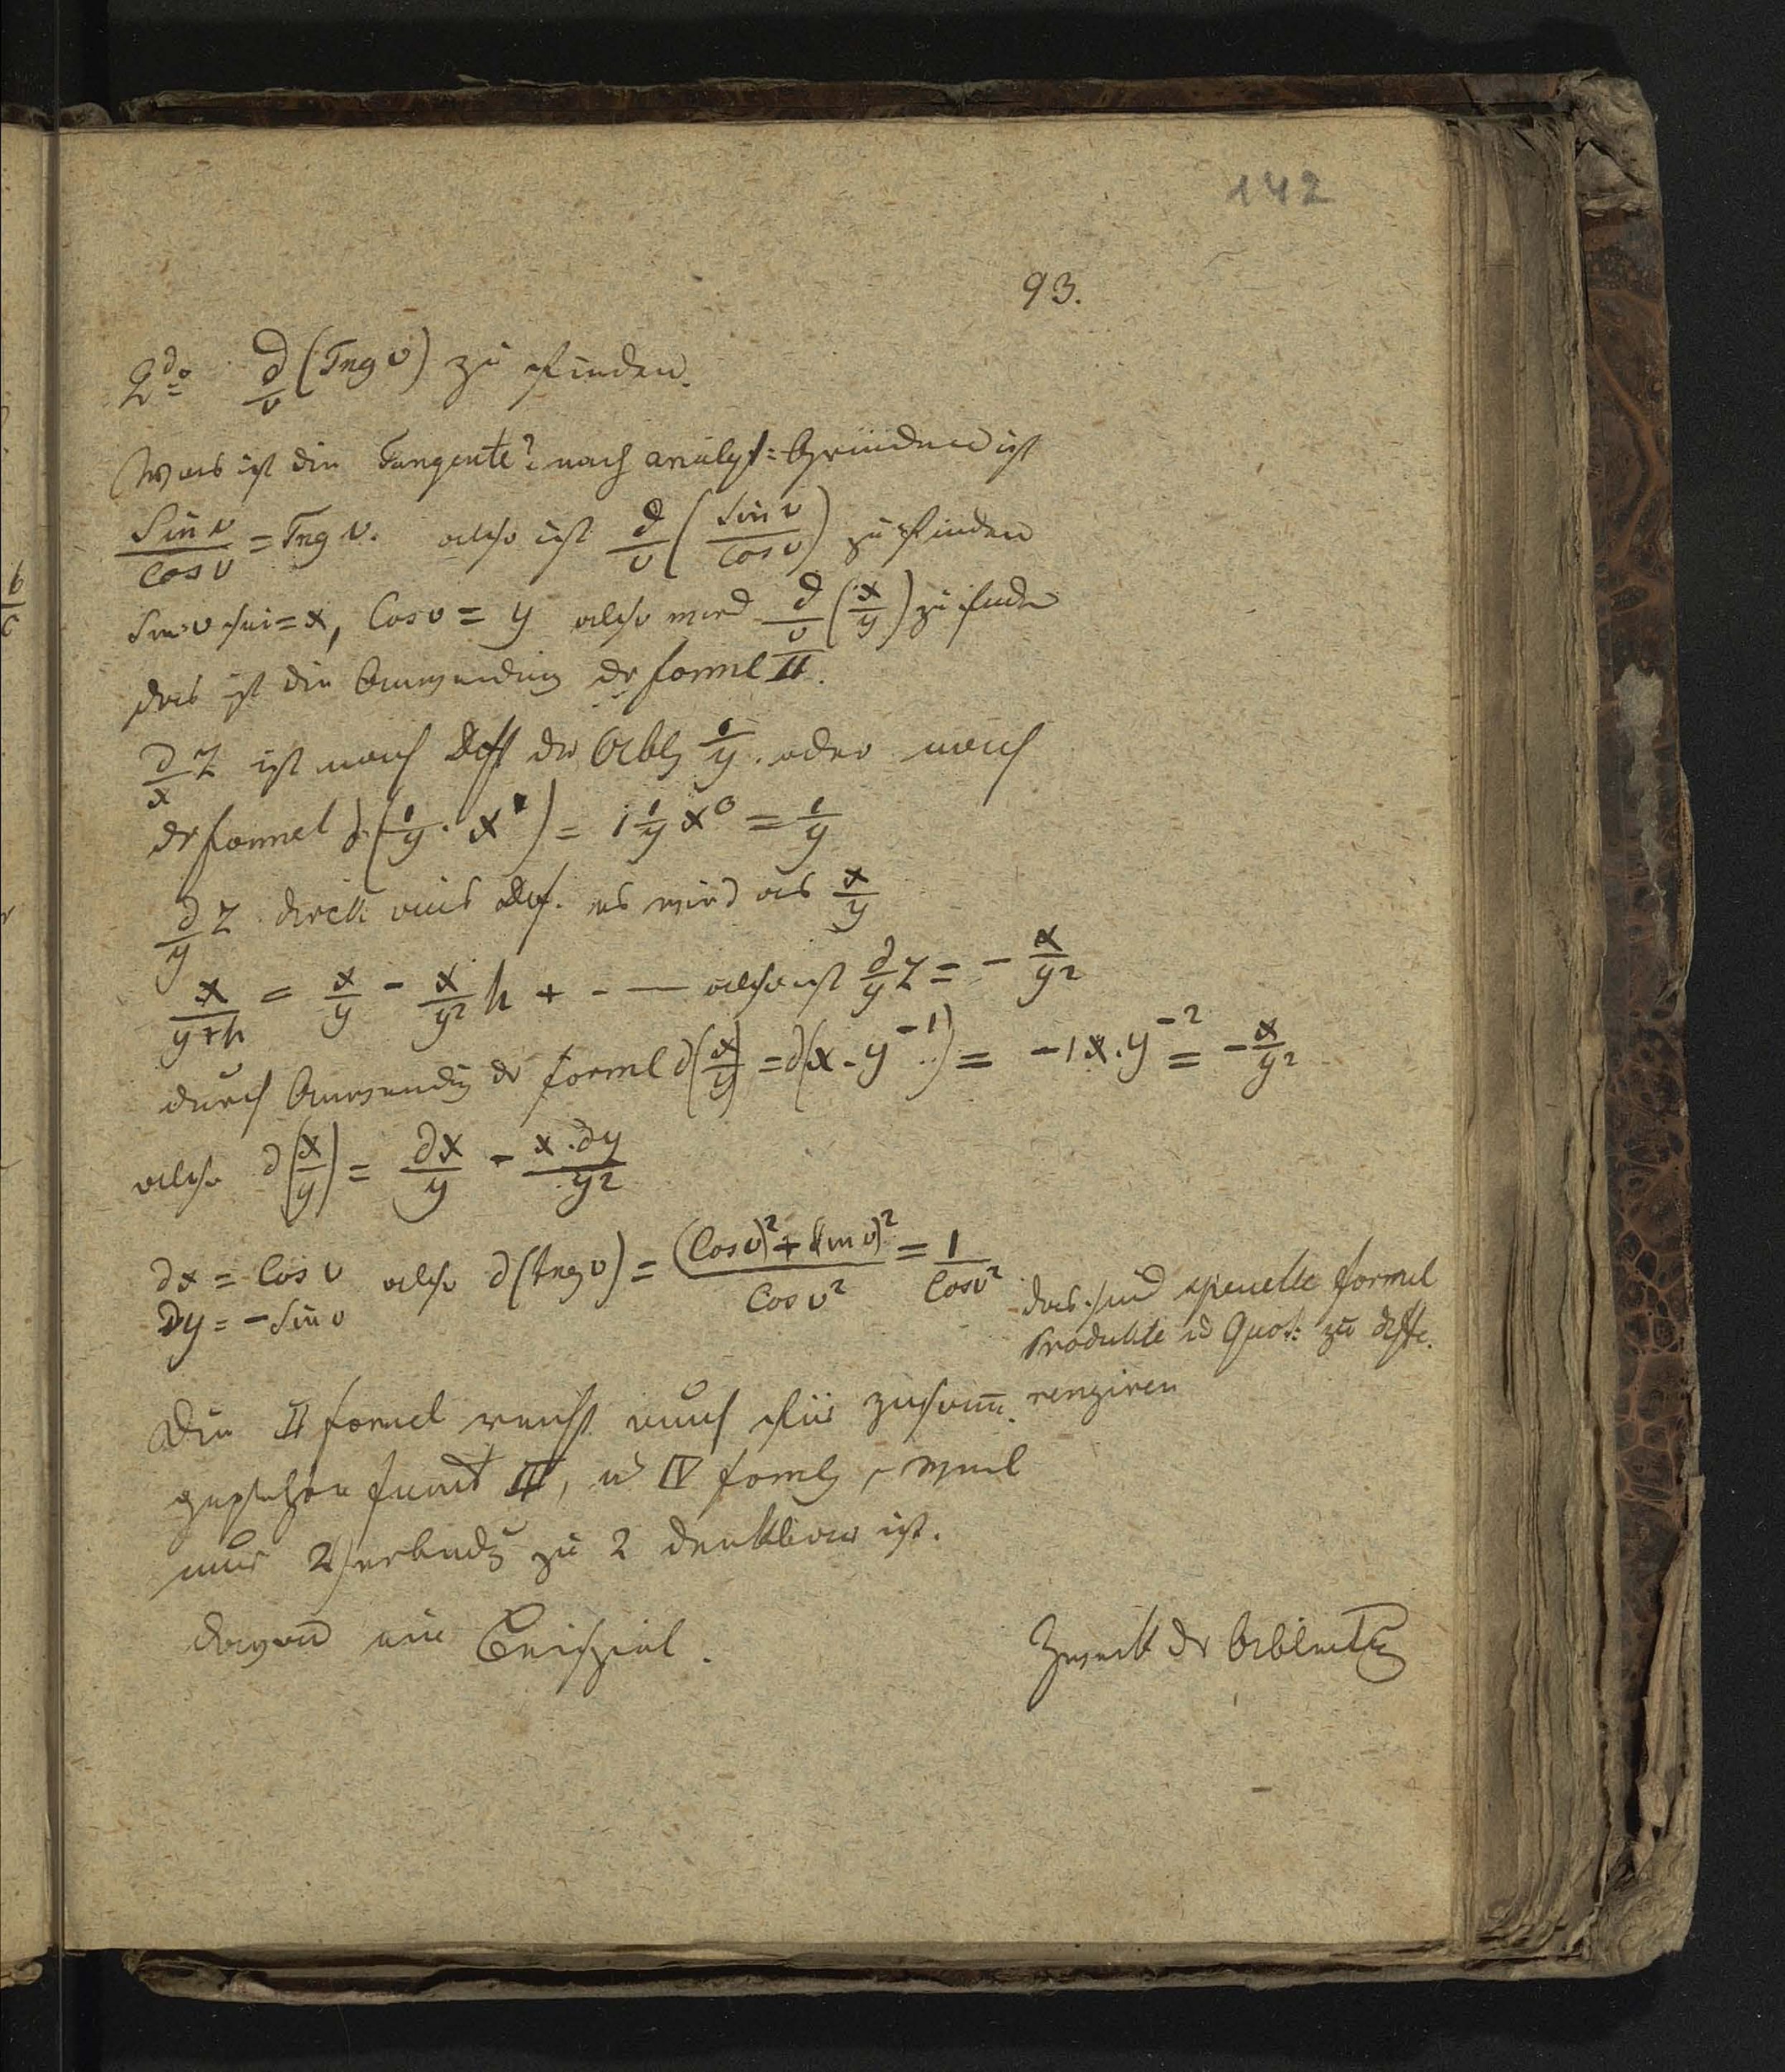 142
93.
2do ∂/v (Tng v) zu finden.
Was ist die Tangente? nach analyt: Gründen ist
Sin v/Cos v = Tng v. also ist ∂/v (Sin v/Cos v) zu finden
Sin v sei = x, Cos v = y also wird ∂/v (x/y) zu finden
das ist die Anwendung der forml II.
∂/x Z ist nach der Ablg 1/y. oder nach
der formel ∂(1/y. x¹) = 1 1/y x⁰ = 1/y
∂/y Z direkt aus Def. es wird aus x/y
x/(y+h) = x/y - x/y² h + - — also ist ∂/y Z = - x/y²
durch Anwendg der forml ∂(x/y) = ∂(x. y⁻¹) = -1x.y⁻² = - x/y²
also ∂(x/y) = ∂x/y - x.∂y/y²
∂x = Cos v also ∂(tng v) = ((Cos v)² + (Sin v)²)/Cos v² = 1/Cos v²
∂y = - Sin v
das sind spezielle formel
Produkte u Quot: zu diffe.
renziren
Die II formel reicht auch für zusam̄.
gesetzte funct III, u IV formlg, weil
nur Verbindg zu 2 denkbar ist.
davon ein Beispiel.
Zweck der Ableitug